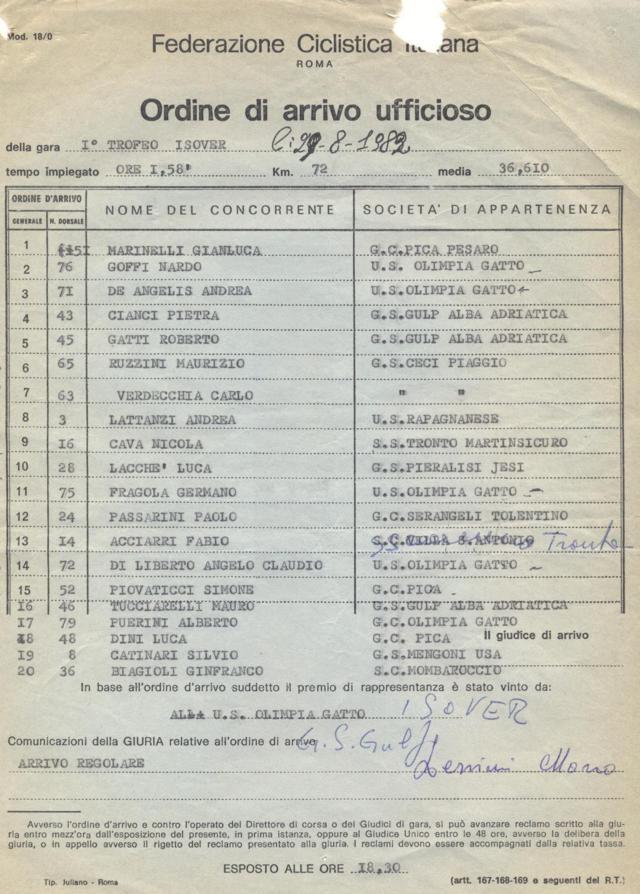 Mod. 18/0
Federazione Ciclistica Italiana
ROMA
Ordine di arrivo ufficioso
della gara I° TROFEO ISOVER lì: 29-8-1982
tempo impiegato ORE I,58' Km. 72 media 36,6I0
ORDINE D'ARRIVO NOME DEL CONCORRENTE SOCIETA' DI APPARTENENZA
GENERALE N. DORSALE
1 I5I MARINELLI GIANLUCA G.C.PICA PESARO
2 76 GOFFI NARDO U.S. OLIMPIA GATTO
3 7I DE ANGELIS ANDREA U.S.OLIMPIA GATTO
4 43 CIANCI PIETRA G.S.GULP ALBA ADRIATICA
5 45 GATTI ROBERTO G.S.GULP ALBA ADRIATICA
6 65 RUZZINI MAURIZIO G.S.CECI PIAGGIO
7 63 VERDECCHIA CARLO " "
8 3 LATTANZI ANDREA U.S.RAPAGNANESE
9 I6 CAVA NICOLA S.S.TRONTO MARTINSICURO
10 28 LACCHE' LUCA G.S.PIERALISI JESI
11 75 FRAGOLA GERMANO U.S.OLIMPIA GATTO
12 24 PASSARINI PAOLO G.C.SERANGELI TOLENTINO
13 I4 ACCIARRI FABIO S.C.VILLA S.ANTONIO Tronto
14 72 DI LIBERTO ANGELO CLAUDIO U.S.OLIMPIA GATTO
15 52 PIOVATICCI SIMONE G.C.PICA
I6 46 TUCCIARELLI MAURO G.S.GULP ALBA ADRIATICA
I7 79 PUERINI ALBERTO G.C.OLIMPIA GATTO
I8 48 DINI LUCA G.C. PICA Il giudice di arrivo
I9 8 CATINARI SILVIO G.S.MENGONI USA
20 36 BIAGIOLI GINFRANCO S.C.MOMBAROCCIO
In base all'ordine d'arrivo suddetto il premio di rappresentanza è stato vinto da:
ALLA U.S. OLIMPIA GATTO ISOVER
Comunicazioni della GIURIA relative all'ordine di arrivo G.S.Gulp
ARRIVO REGOLARE
Avverso l'ordine d'arrivo e contro l'operato del Direttore di corsa o dei Giudici di gara, si può avanzare reclamo scritto alla giu-
ria entro mezz'ora dall'esposizione del presente, in prima istanza, oppure al Giudice Unico entro le 48 ore, avverso la delibera della
giuria, o in appello avverso il rigetto del reclamo presentato alla giuria. I reclami devono essere accompagnati dalla relativa tassa.
ESPOSTO ALLE ORE I8,30
Tip. Juliano - Roma (artt. 167-168-169 e seguenti del R.T.)